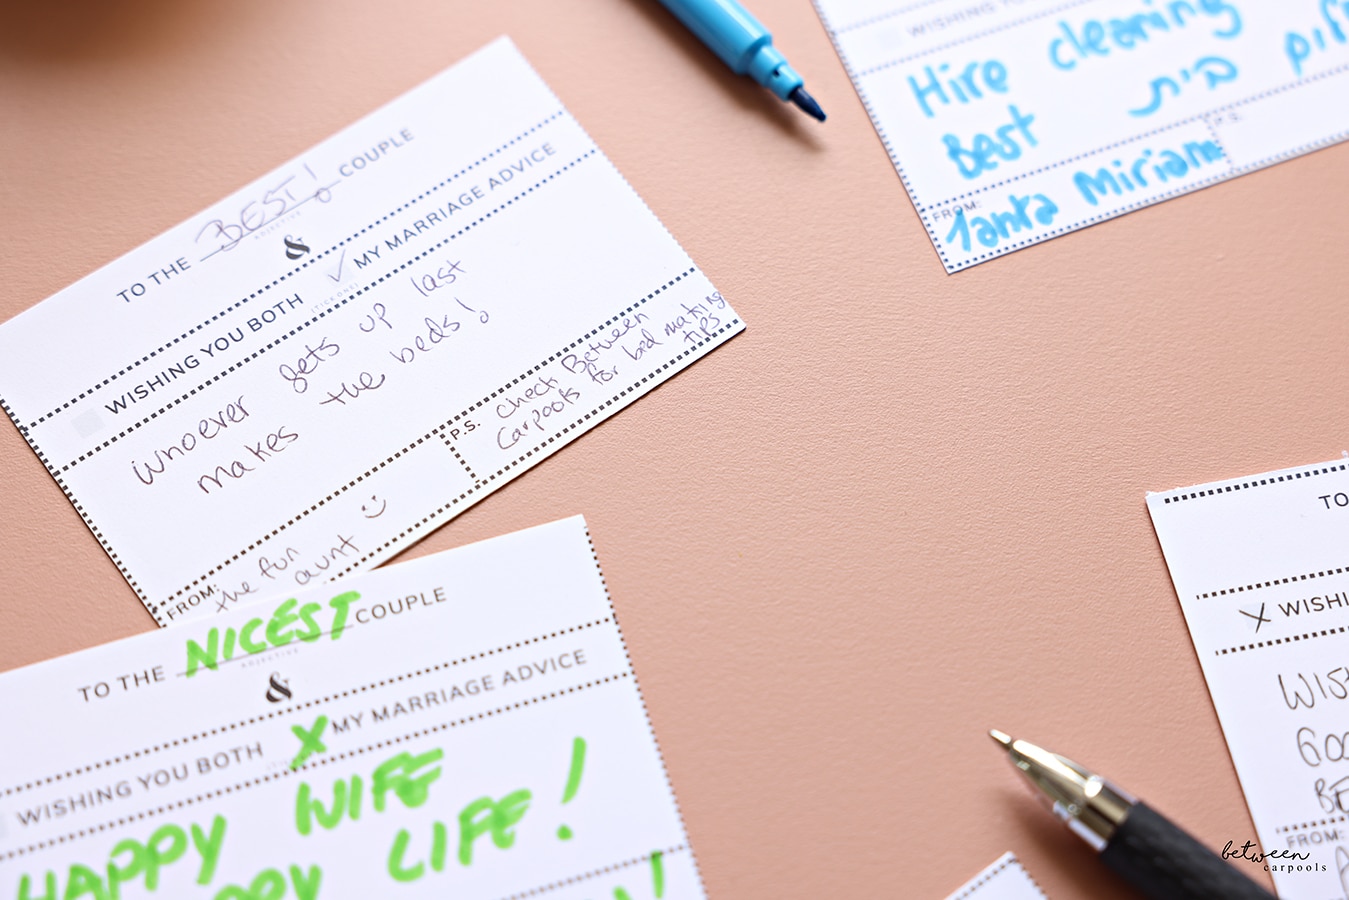 TO THE BEST! COUPLE
ADJECTIVE
&
WISHING YOU BOTH ✓ MY MARRIAGE ADVICE
(TICK ONE)
whoever gets up last
makes the beds!
FROM: the fun
aunt
P.S. check Between
Carpools for
bed making
tips
TO THE NICEST COUPLE
ADJECTIVE
&
WISHING YOU BOTH X MY MARRIAGE ADVICE
HAPPY WIFE
LIFE!
WISHING
Hire cleaning
Best בית
FROM:
Tanta Miriam
P.S.
TO
X WISHI
FROM:
between
carpools